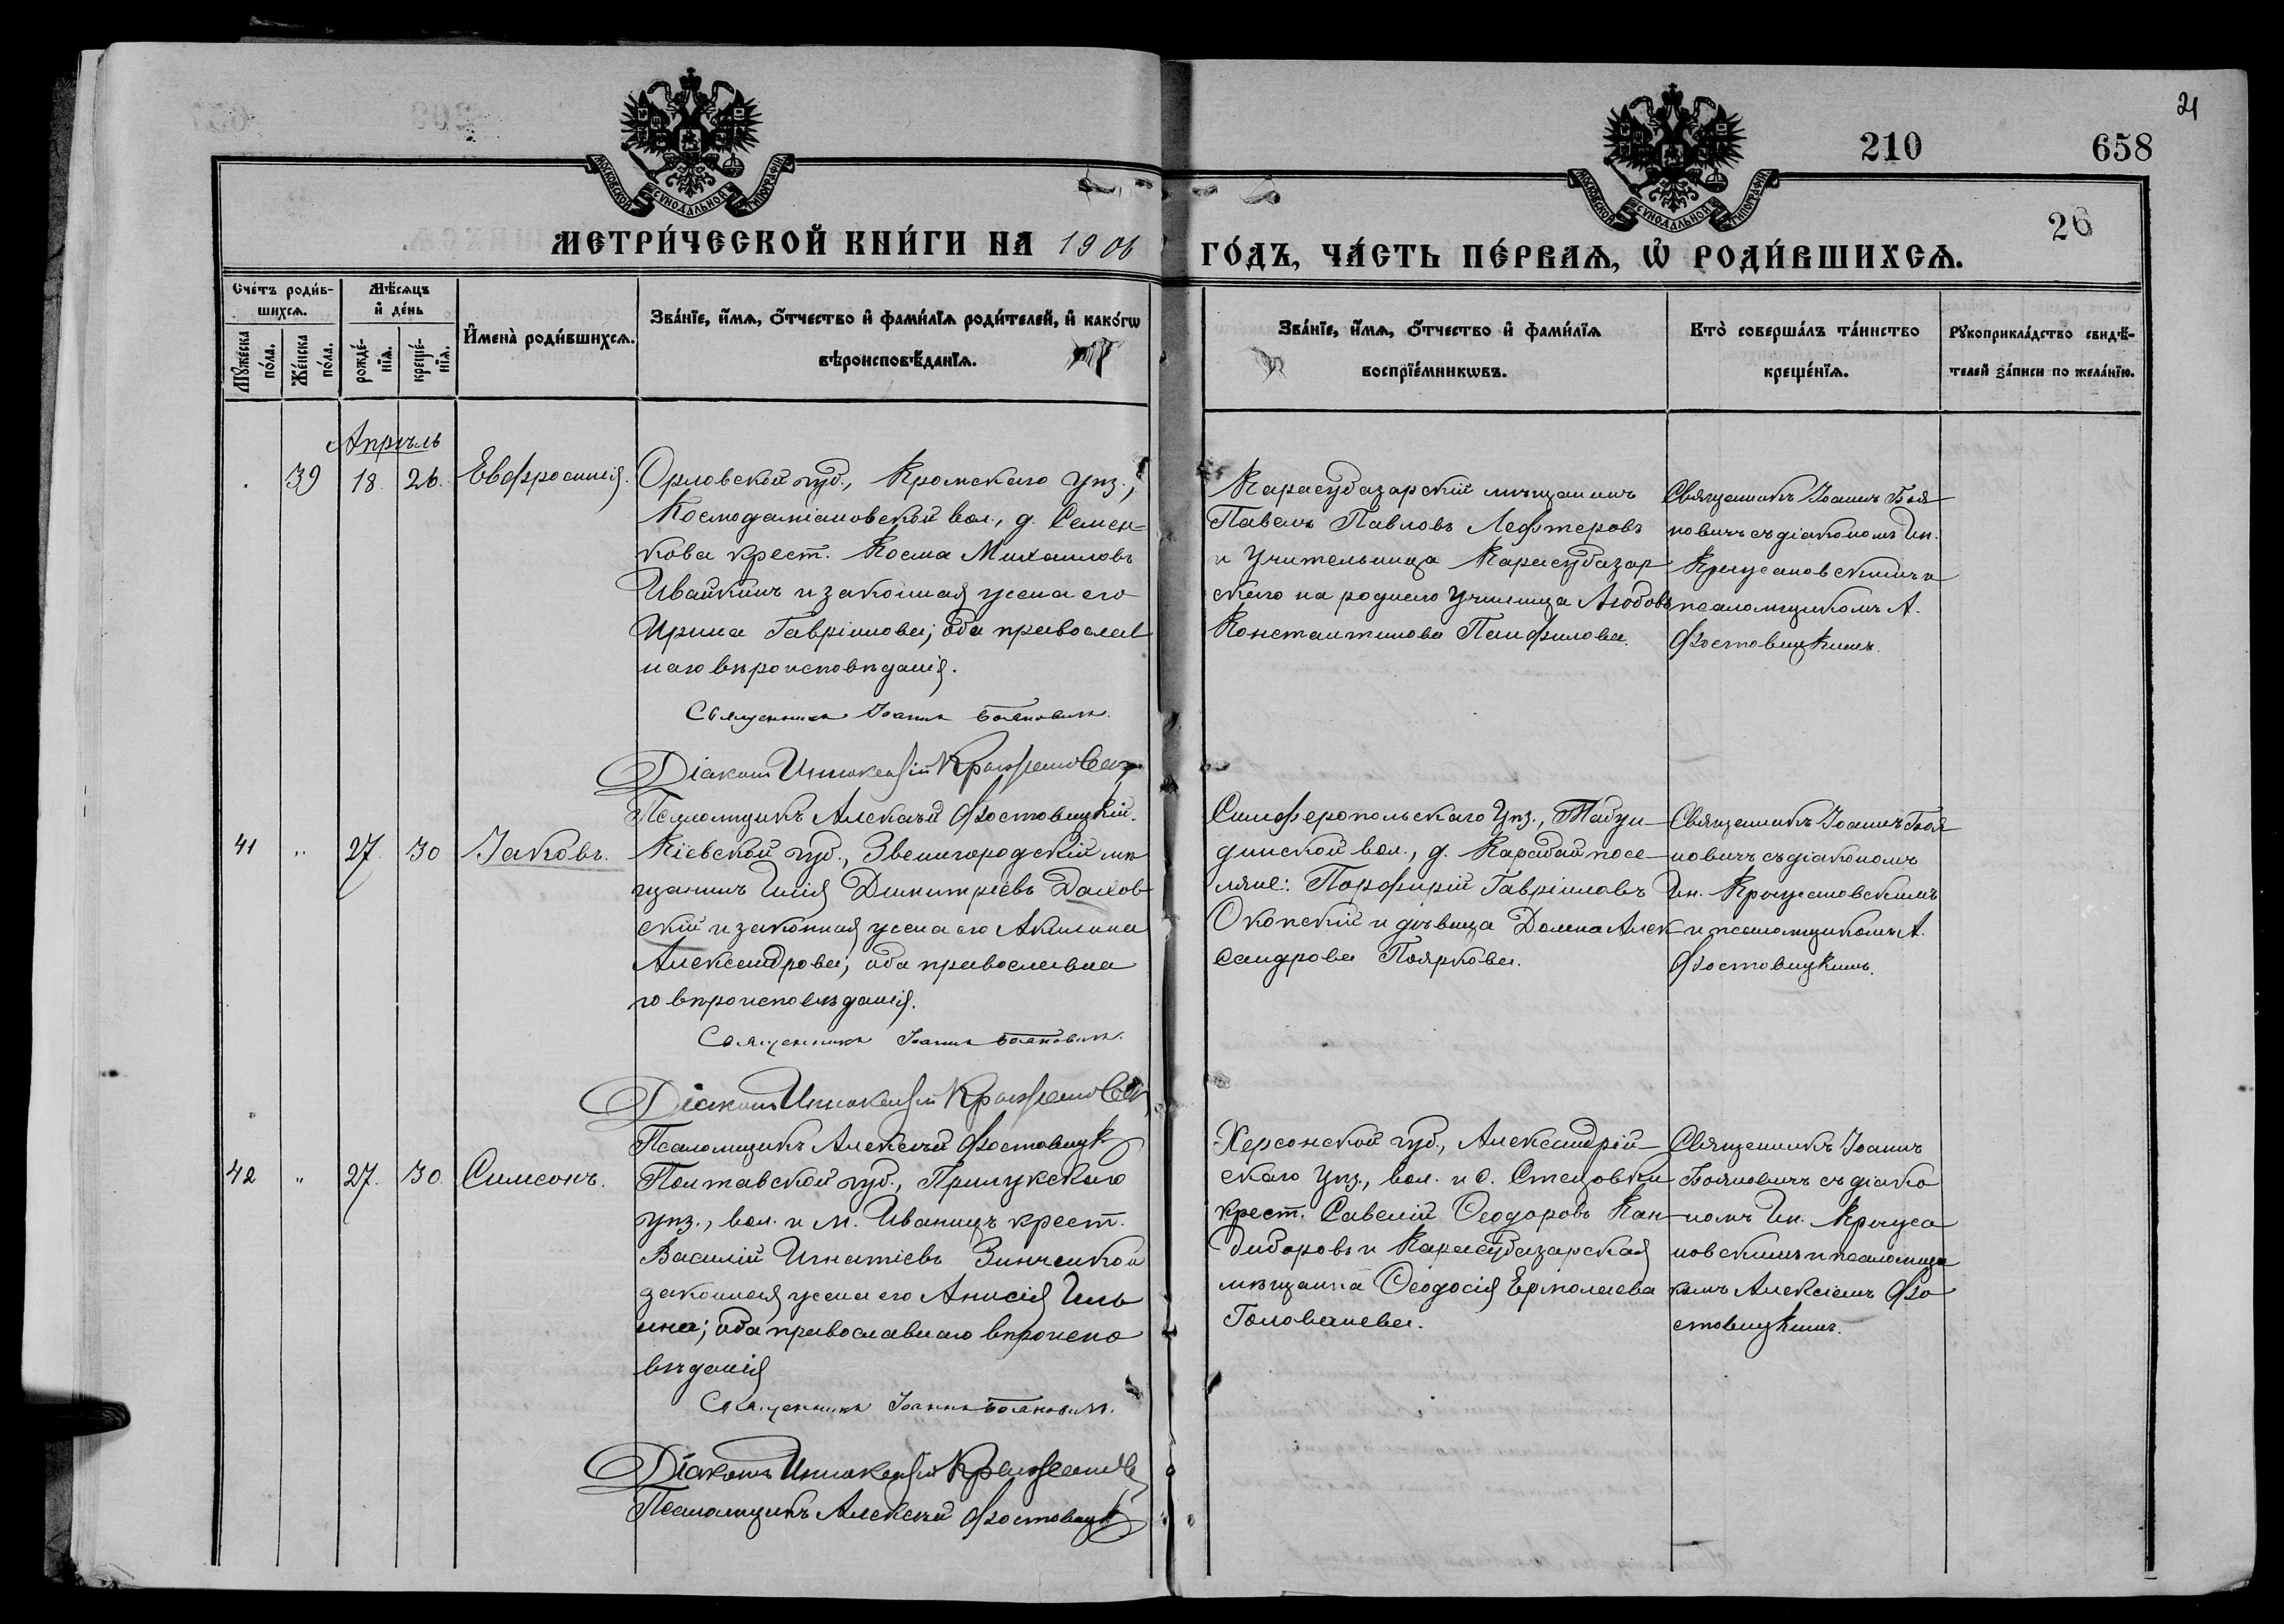 21
210 658
26
МОСКОВСКОЙ СѴНОДАЛЬНОЙ ТИПОГРАФІИ
МОСКОВСКОЙ СѴНОДАЛЬНОЙ ТИПОГРАФІИ
МЕТРИ́ЧЕСКОЙ КНИ́ГИ НА 1906
ГО́ДЪ, ЧА́СТЬ ПЕ́РВАѦ, Ѡ҆ РОДИ́ВШИХСѦ.
Сче́тъ роди́в-
шихсѧ.
Мꙋ́жеска по́ла.
Же́нска по́ла.
Мѣ́сѧцъ и҆ де́нь
рожде́-нїѧ.
креще́-нїѧ.
И҆мена̀ роди́вшихсѧ.
Зва́нїе, и҆́мѧ, ѻ҆́тчество и҆ фами́лїѧ роди́телей, и҆ како́гѡ
вѣроисповѣ́данїѧ.
Зва́нїе, и҆́мѧ, ѻ҆́тчество и҆ фами́лїѧ
воспрїе́мникѡвъ.
Кто̀ соверша́лъ та́инство
креще́нїѧ.
Рꙋкоприкла́дство свидѣ́-
телей за́писи по жела́нїю.
Апрѣль
39 18. 26. Евфросинія.
Орловской губ., Кромскаго уѣз.,
Космодаміановской вол., д. Семен-
кова крест. Косма Михаиловъ
Ивайкинъ и законная жена его
Ирина Гавріилова; оба православ
наго вѣроисповѣданія.
Священникъ Іоаннъ Бояновичъ.
Діаконъ Иннокентій
Псаломщикъ Алексѣй Фостовицкій.
Карасубазарскій мѣщанинъ
Павелъ Павловъ Лефтеровъ
и учительница Карасубазар
скаго народнаго училища Любовь
Константинова Панфилова.
Священникъ Іоаннъ Боя
новичъ съ діакономъ Ин.
Крыжановскимъ и
псаломщикомъ А.
Фостовицкимъ.
41 " 27. 30 Іаковъ.
Кіевской губ., Звенигородскій мѣ
щанинъ Илія Димитріевъ Далов
скій и законная жена его Акилина
Александрова; оба православна
го вѣроисповѣданія.
Священникъ Іоаннъ Бояновичъ.
Діаконъ Иннокентій
Псаломщикъ Алексѣй Фостовицк
Симферопольскаго уѣз., Табул
динской вол., д. Карабай посе
ляне: Порфирій Гавріиловъ
Окопскій и дѣвица Домна Алек
сандрова Пояркова.
Священникъ Іоаннъ Боя
новичъ съ діакономъ
Ин. Крыжановскимъ
и псаломщикомъ А.
Фостовицкимъ.
42 " 27. 30. Симеонъ.
Полтавской губ., Прилукскаго
уѣз., вол. и м. Иваницъ крест.
Василій Игнатіевъ Зинченко и
законная жена его Анисія Иль
ина; оба православнаго вѣроиспо
вѣданія
Священникъ Іоаннъ Бояновичъ.
Діаконъ Иннокентій
Псаломщикъ Алексѣй Фостовицк
Херсонской губ., Александрій
скаго уѣз., вол. и с. Стецовки
крест. Савелій Ѳеодоровъ Кан
дыборовъ и Карасубазарская
мѣщанка Ѳеодосія Ермолаева
Головачева.
Священникъ Іоаннъ
Бояновичъ съ діако
номъ Ин. Крыжа
новскимъ и псаломщи
комъ Алексіемъ Фо
стовицкимъ.